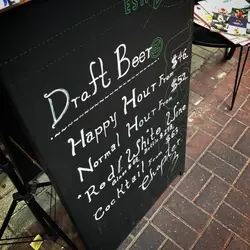 EST
Draft Beer
Happy Hour From $46
Normal Hour From $52
Red & White Wine
Cocktail From